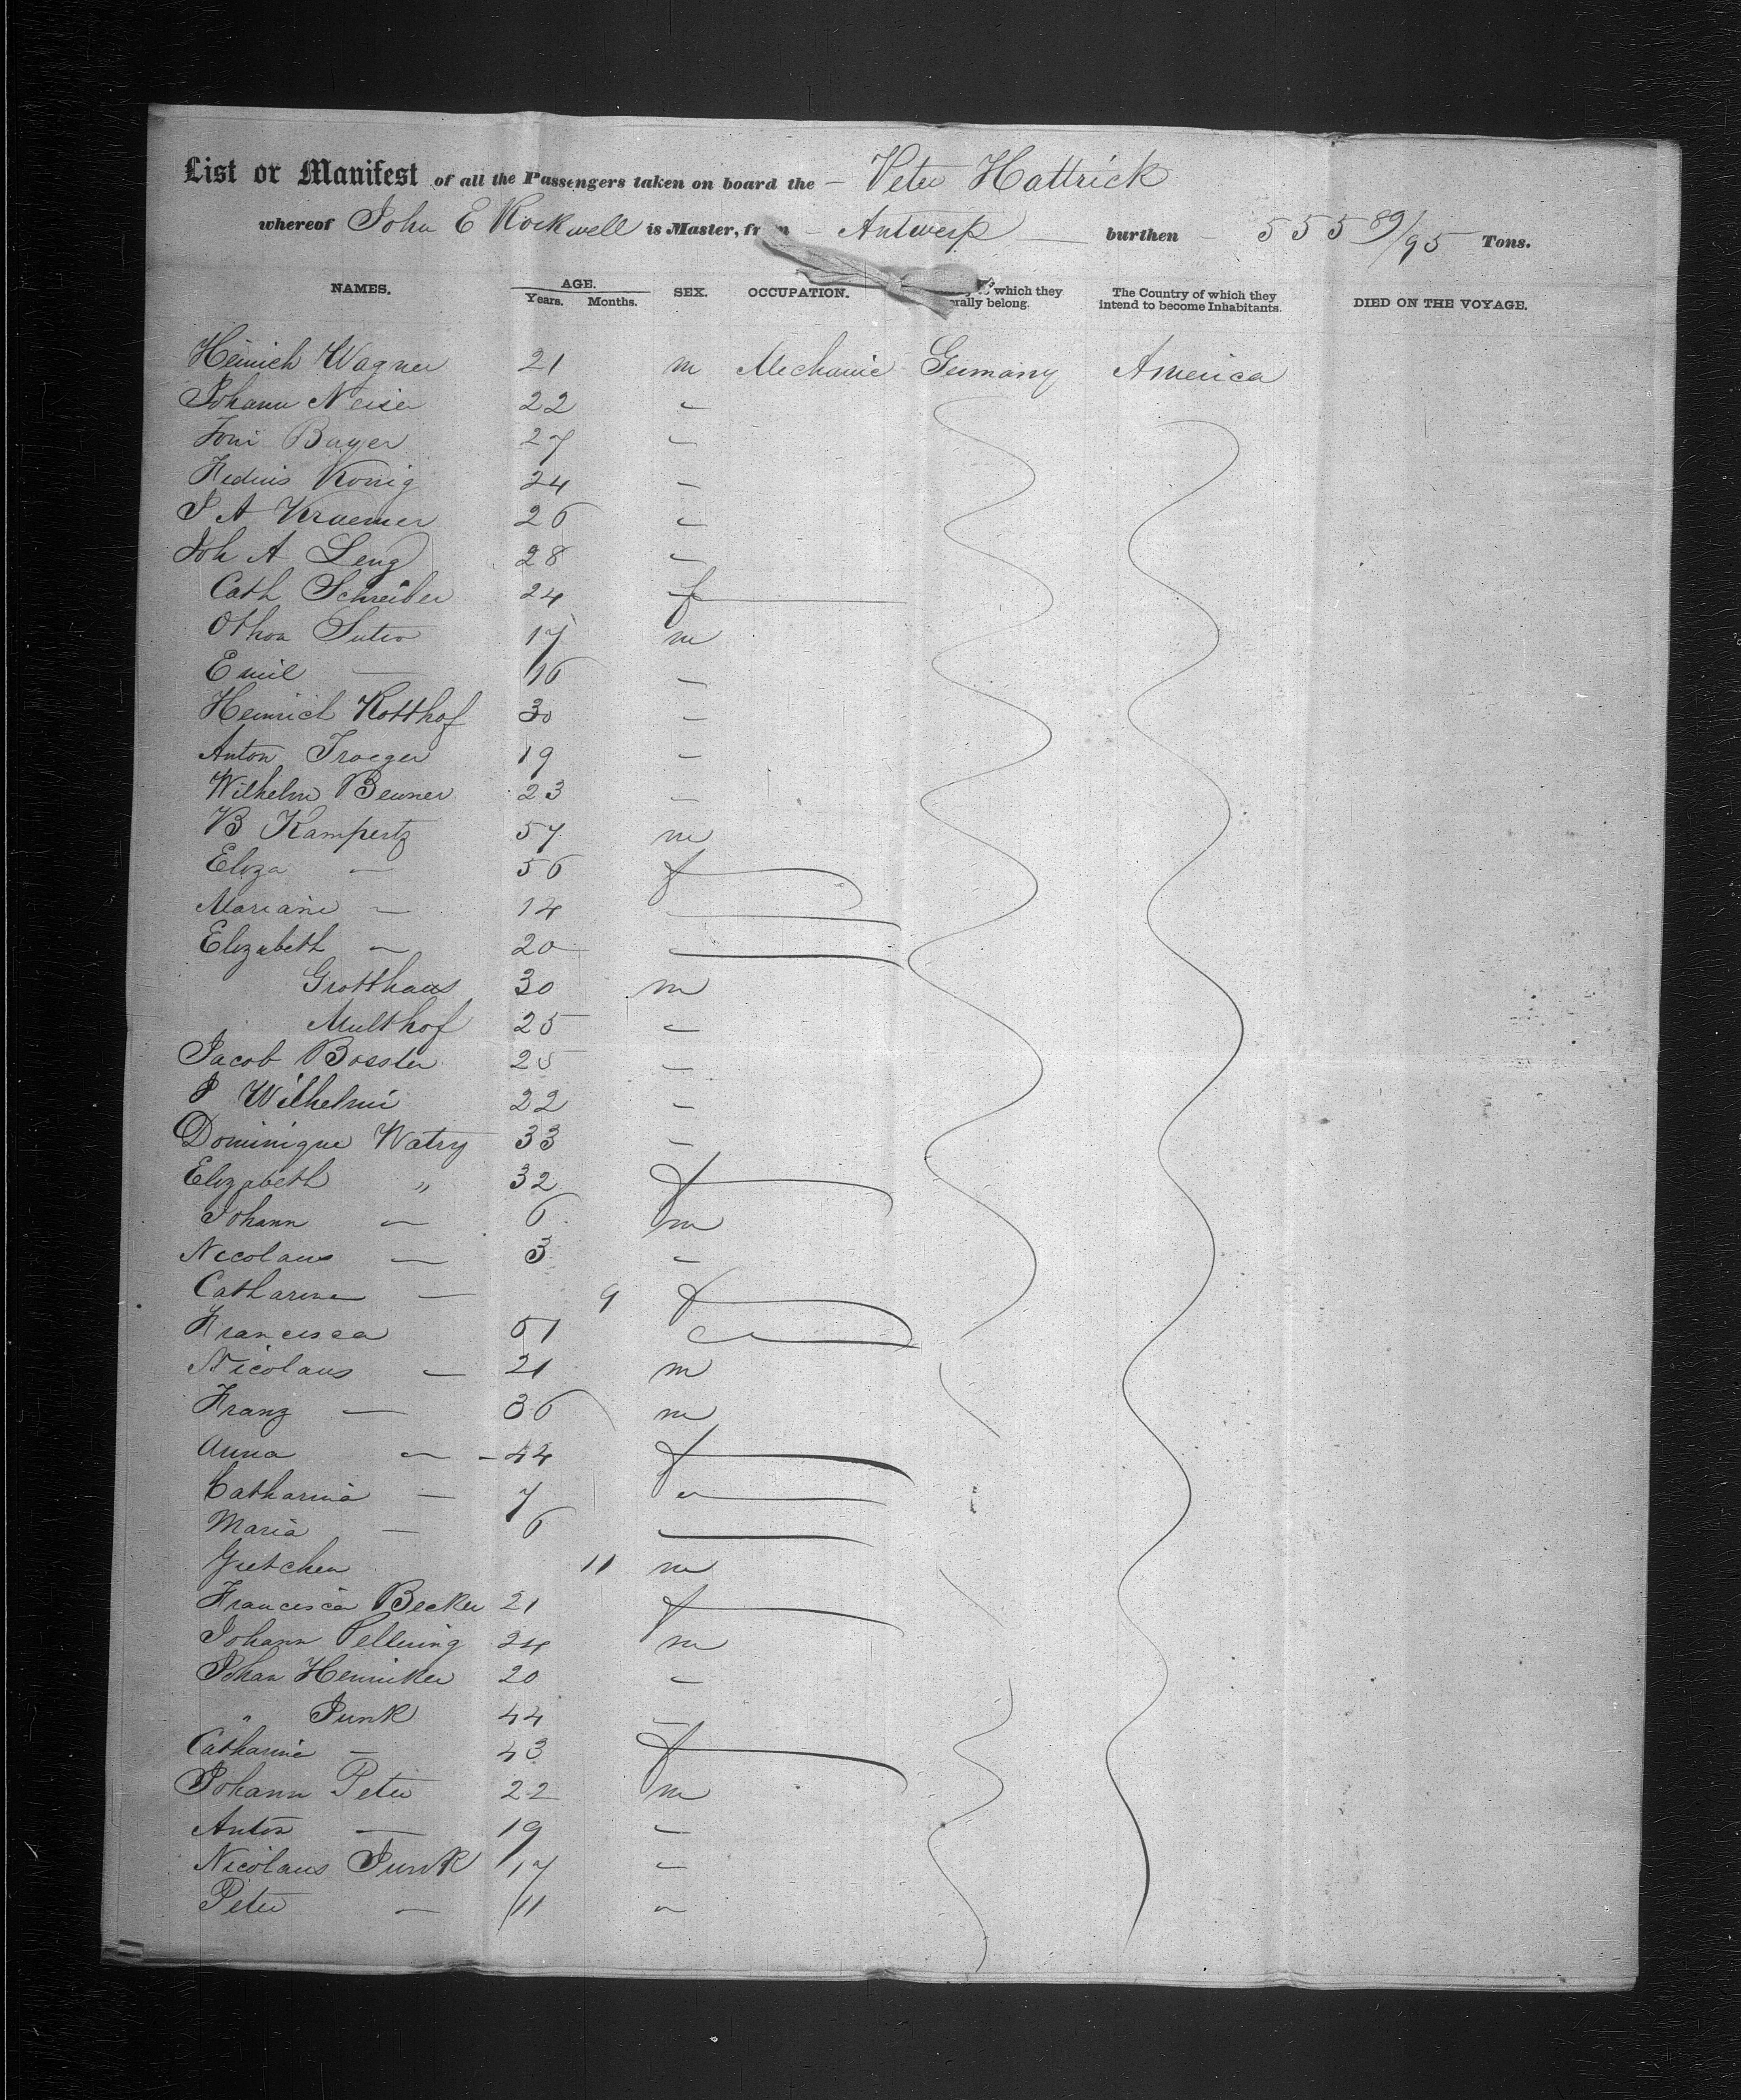 List or Manifest of all the Passengers taken on board the — Peter Hattrick
whereof John E Rockwell is Master, from — Antwerp — burthen — 555 89/95 Tons.
NAMES. AGE. Years. Months. SEX. OCCUPATION. which they erally belong. The Country of which they intend to become Inhabitants. DIED ON THE VOYAGE.
Heinrich Wagner 21 m Mechanic Germany America
Johann Neiser 22 "
Bayer 27 "
König 24 "
P A Kraemer 26 "
Joh A Leng 28 "
Cath Schreiber 24 f
Othon Sutro 17 m
Emil — 16 "
Heinrich Kotthof 30 "
Anton Traeger 19 "
Wilhelm Beuner 23 "
B Kampertz 57 m
Eliza — 56 f
Mariane — 14 —
Elizabeth — 20 —
Grotthaus 30 m
Multhof 25 "
Jacob Bossler 25 "
P Wilhelmi 22 "
Dominique Watry 33 "
Elizabeth " 32 f
Johann — 6 m
Nicolaus — 3 "
Catharina — 9 f
Francisca 61 "
Nicolaus — 21 m
Franz — 36 m
Anna — 44 f
Catharina — 7 "
Maria — 6 —
Gretchen 11 m
Francisca Becker 21 f
Johann Pellering 24 m
Johan Henniker 20 "
" Junk 44 "
Catharine — 43 f
Johann Peter 22 m
Anton — 19 "
Nicolaus Junk 17 "
Peter — 11 "